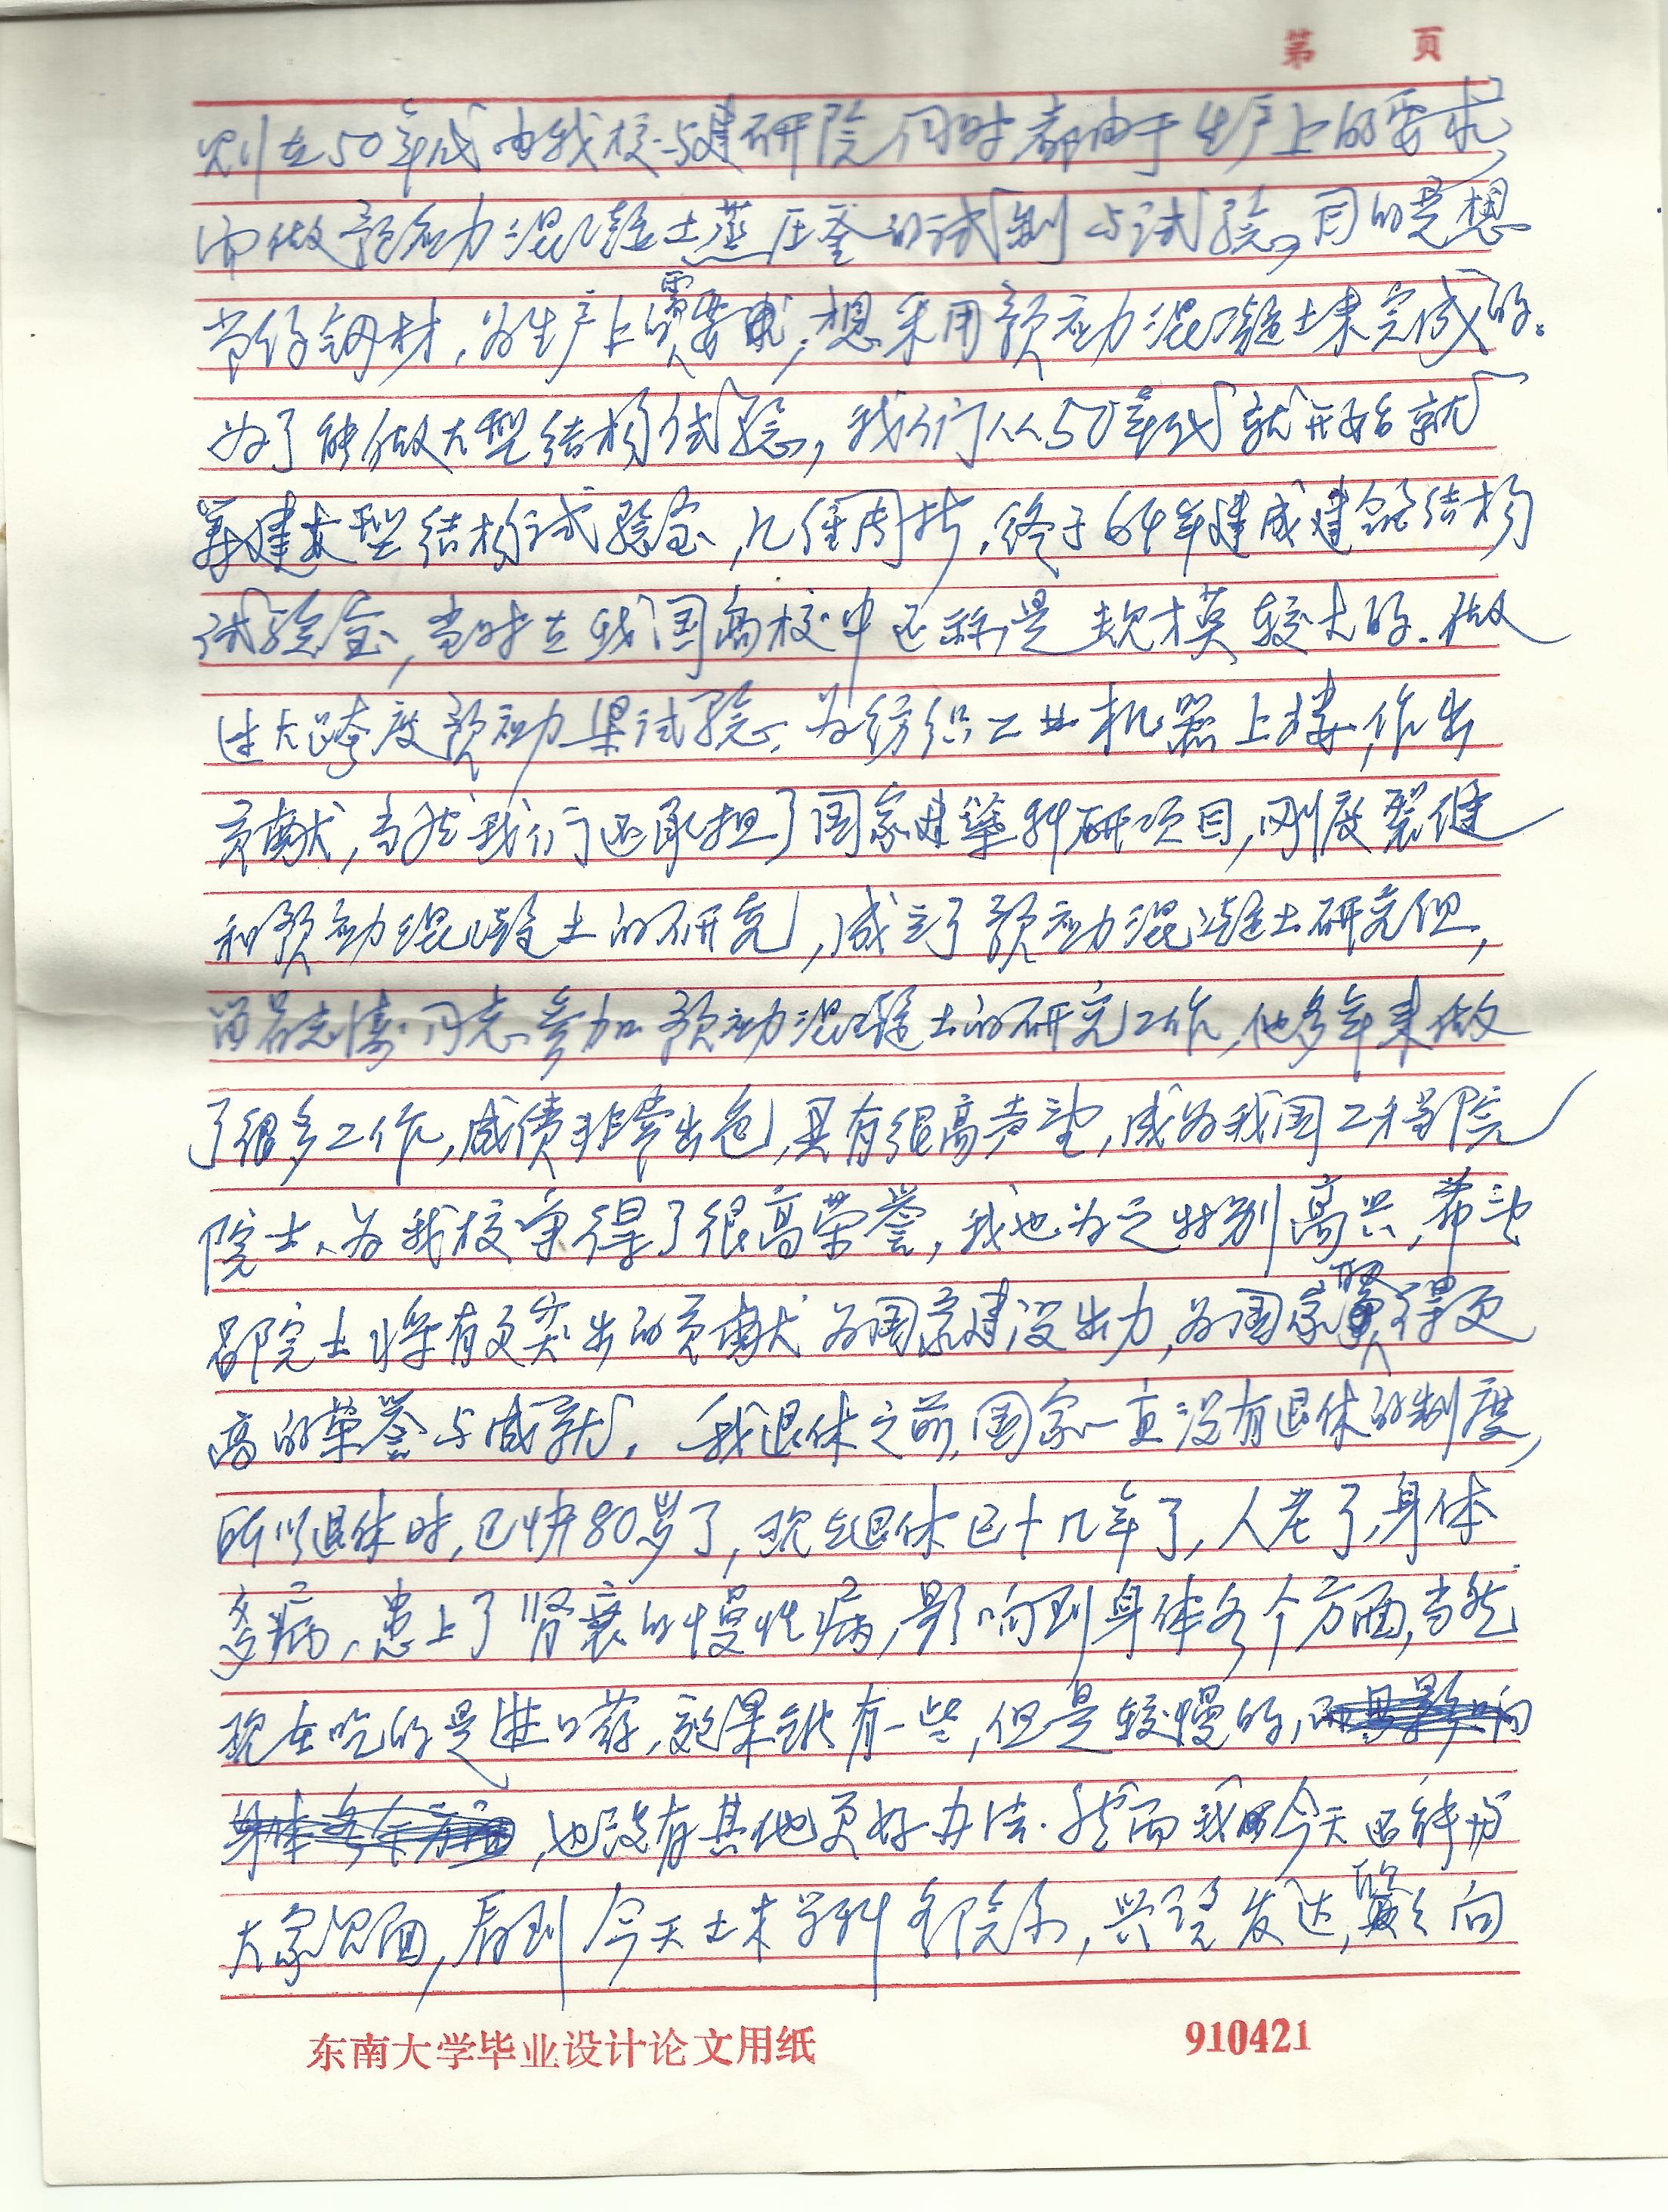 第 页
则在50年代由我校与建研院同时都由于生产上的要求,
而做预应力混凝土蒸压釜的试制与试验,目的是想
节约钢材,为生产上的需要,想采用预应力混凝土来完成的。
为了能做大型结构试验,我们从50年代就开始就
筹建大型结构试验室,几经周折,终于64年建成建筑结构
试验室,当时在我国高校中还称是规模较大的.做
过大跨度预应力梁试验,为纺织工业机器上楼,作出
贡献,当然我们还承担了国家建筑科研项目,刚度裂缝
和预应力混凝土的研究,成立了预应力混凝土研究组,
吕志涛同志参加预应力混凝土的研究工作,他多年来做
了很多工作,成绩非常出色,具有很高声望,成为我国工程院
院士,为我校争得了很高荣誉,我也为之特别高兴,希望
吕院士将有更突出的贡献为国家建设出力,为国家取得更
高的荣誉与成就。我退休之前,国家一直没有退休的制度,
所以退休时,已快80岁了,现在退休已十几年了,人老了,身体
多病,患上了肾衰的慢性病,影响到身体各个方面,当然
现在吃的是进口药,效果能有一些,但是较慢的,而且影响
身体各个方面,也没有其他更好办法.然而我今天还能与
大家见面,看到今天土木学科各院系,兴旺发达,欣欣向
东南大学毕业设计论文用纸 910421